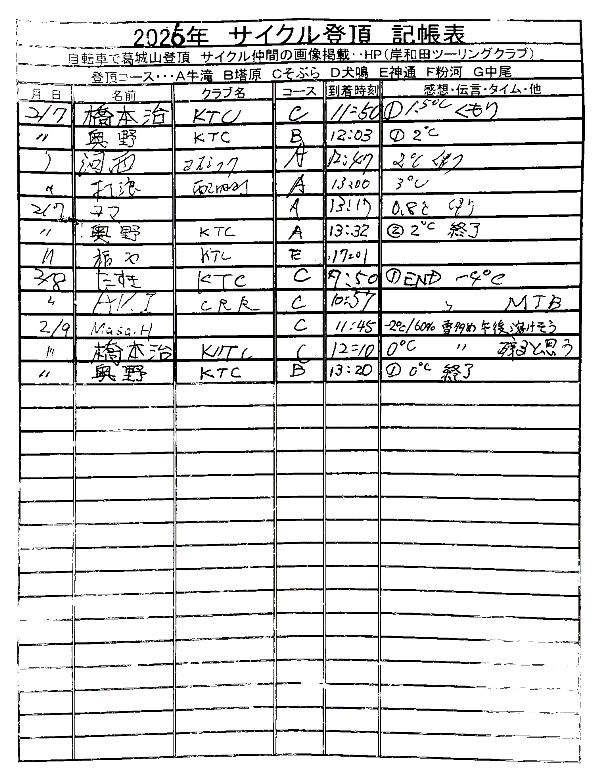 2026年 サイクル登頂 記帳表
自転車で葛城山登頂 サイクル仲間の画像掲載・・HP(岸和田ツーリングクラブ)
登頂コース・・・A牛滝 B塔原 Cそぶら D犬鳴 E神通 F粉河 G中尾
月日 名前 クラブ名 コース 到着時刻 感想・伝言・タイム・他
2/7 橋本治 KTC C 11:50 ① 1.5℃ くもり
〃 奥野 KTC B 12:03 ① 2℃
河西 A 12:47 2℃ くもり
〃 A 13:00 3℃
2/7 コマ A 13:17 0.8℃ くもり
〃 奥野 KTC A 13:32 ② 2℃ 終了
〃 KTC E 17:01
2/8 たすき KTC C 9:50 ① END -4℃
〃 H.K.I CRR C 10:57 〃 MTB
2/9 Masa.H C 11:45 -2℃/60% 雪多め 午後溶けそう
〃 橋本治 KTC C 12:10 0℃ 〃 残ると思う
〃 奥野 KTC B 13:20 ① 0℃ 終了